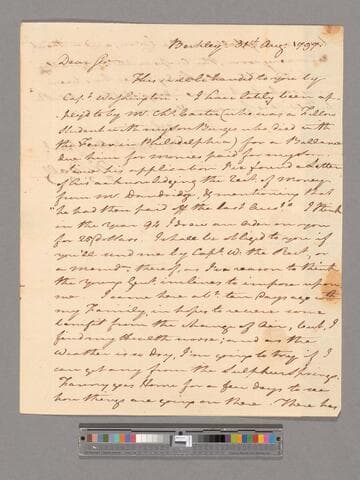 Berkley 31st Aug. 1797.
Dear Sir
This will be handed to you by
Capt. Washington. I have lately been ap-
ply'd to by Mr. Chs. Carter (who was a Fellow
Student with my son Burges who died with
the Fever in Philadelphia) for a Ballance
due him for monies paid for my son
Since his application I've found a Letter
of his acknowledging the rect. of money
from Mr. Dandridge, & mentioning that
"he had then paid off the last Acct." I think
in the year 94 I drew an order on you
for 250 Dollars. I shall be obliged to you if
you'll send me by Capt. W. the Rect. or
a memdn. thereof, as I've reason to think
the young Gent. inclines to impose upon
me. I came here abt. ten Days ago with
my Family, in hopes to receive some
benefit from the change of Air, but I
find my Health worse; and as the
Weather is so Dry, I'm going to try if I
can get any from the Sulphur Springs.
Fanny goes Home for a few days to see
how things are going on there. There has